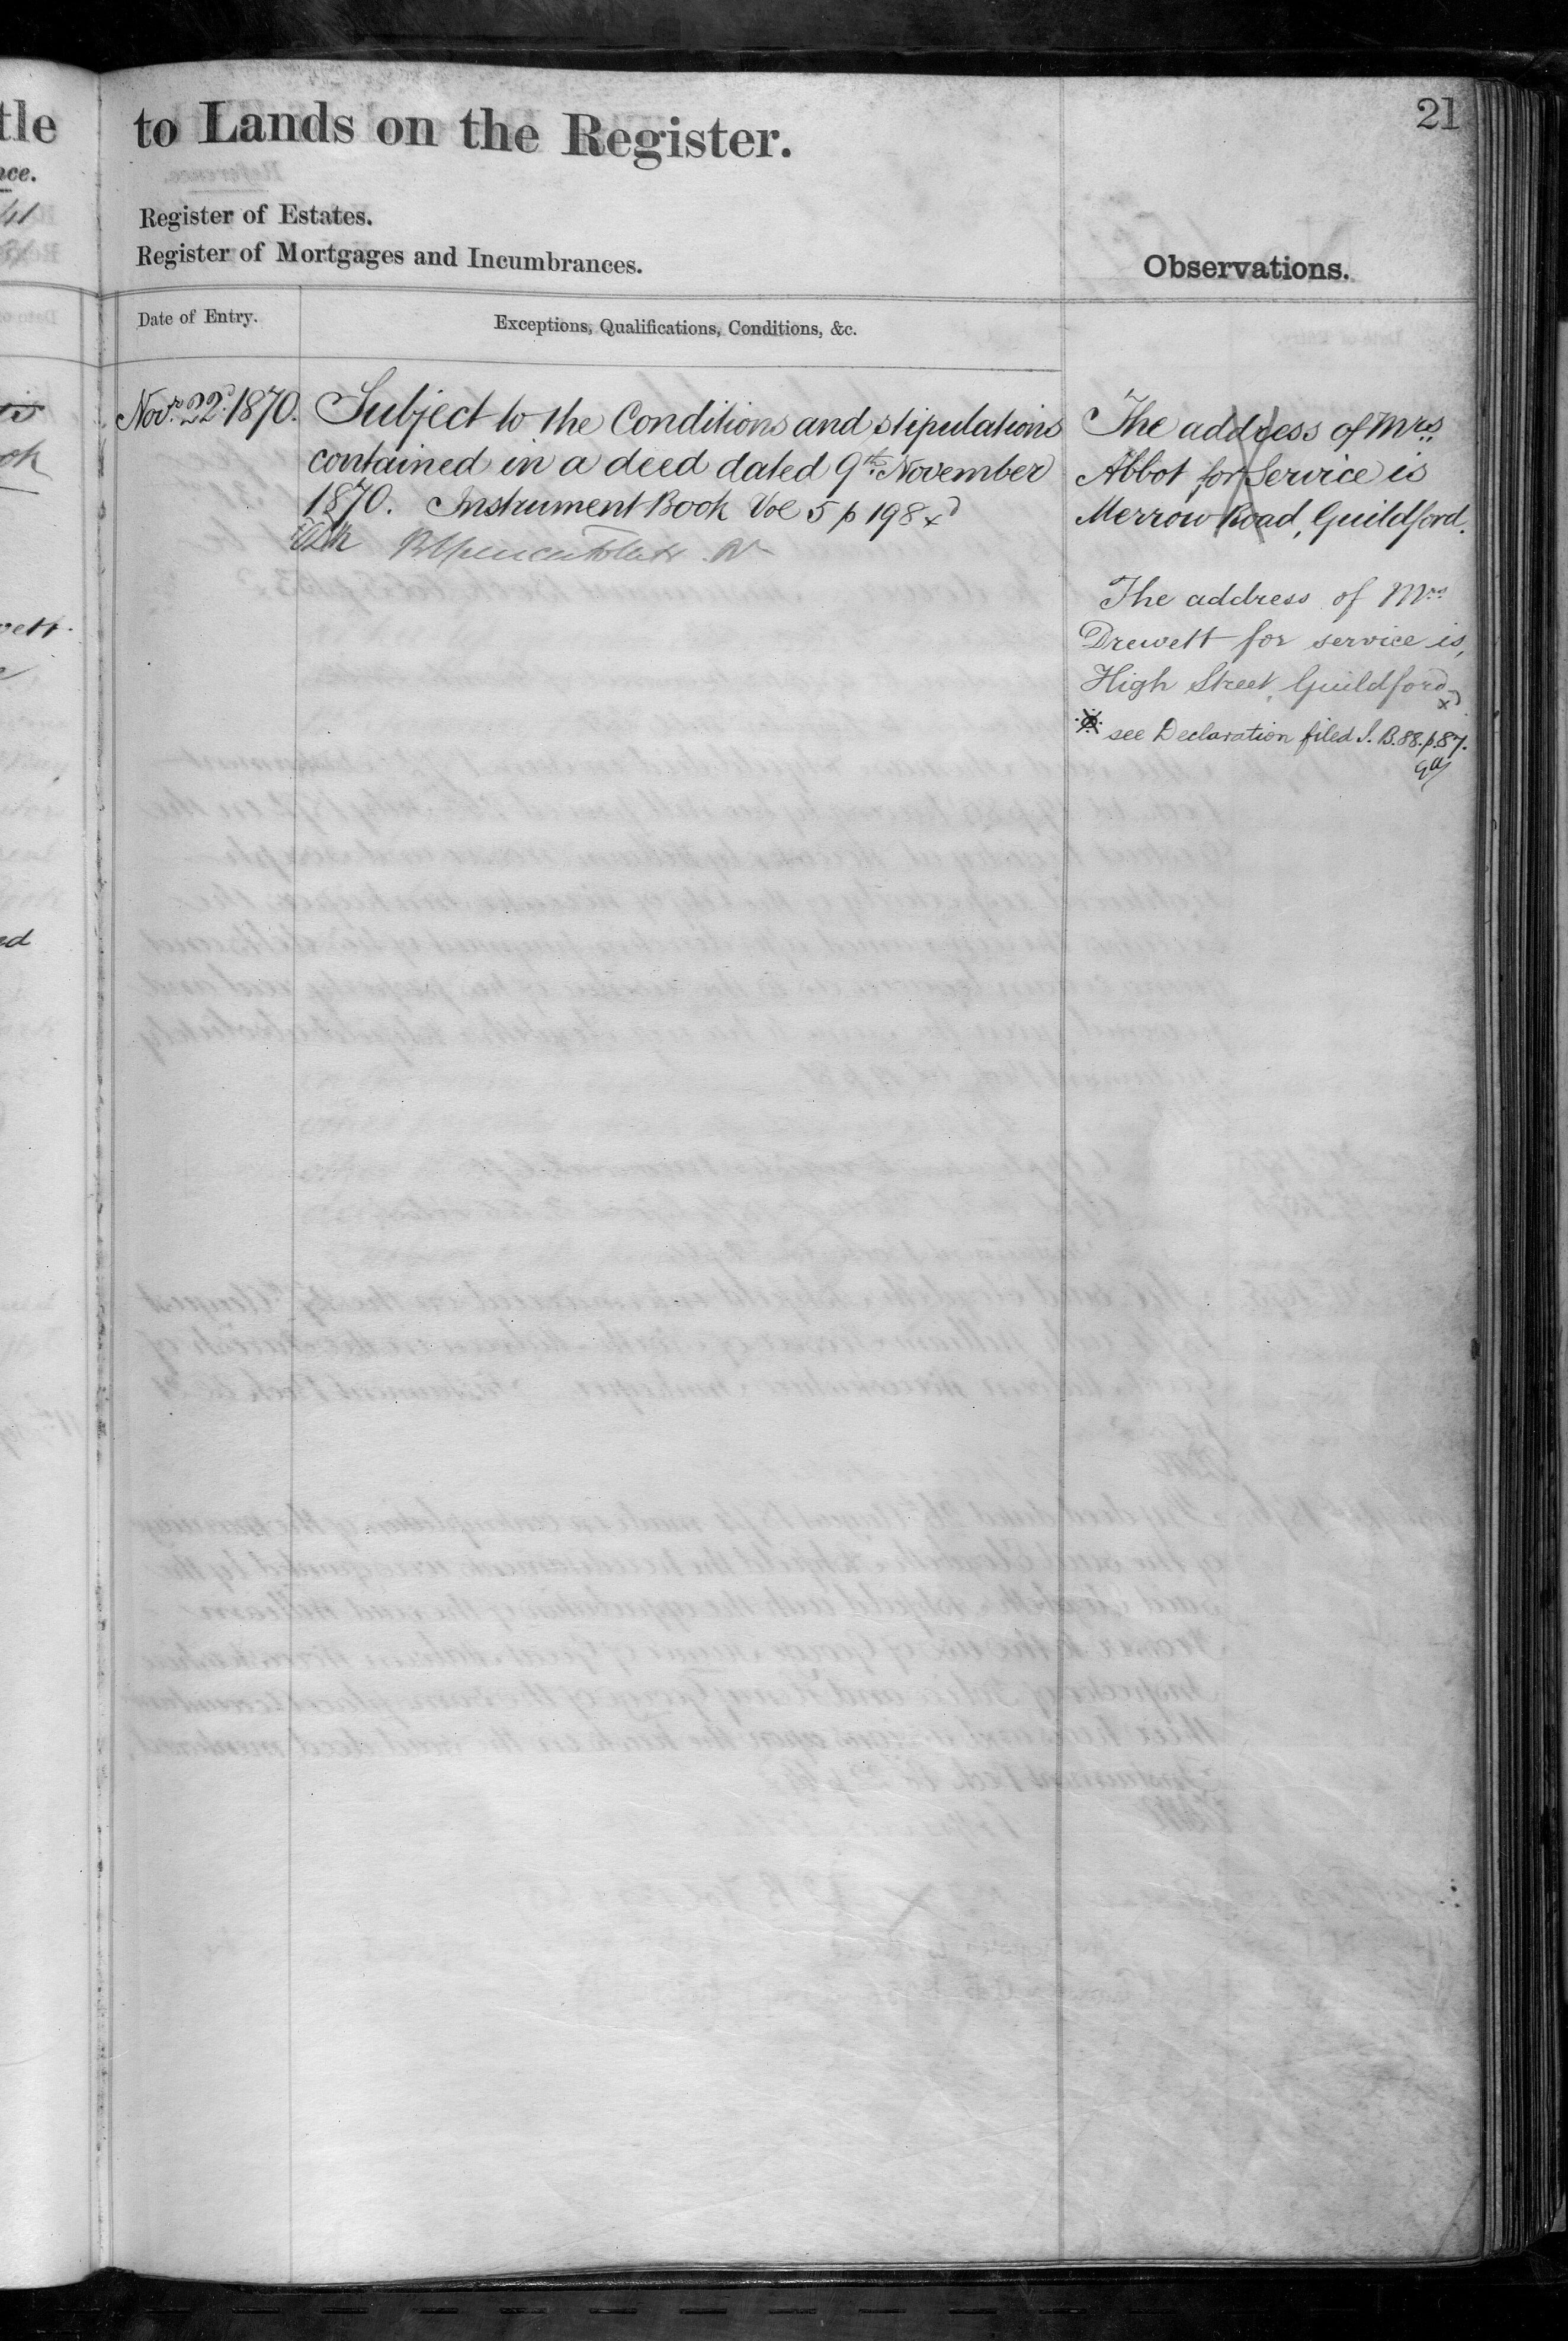 tle
nce.
to Lands on the Register.
21
Register of Estates.
Register of Mortgages and Incumbrances.
Observations.
Date of Entry.
Exceptions, Qualifications, Conditions, &c.
Novr. 22d. 1870.
Subject to the Conditions and stipulations
contained in a deed dated 9th. November
1870. Instrument Book Vol 5 p 198
The address of Mrs.
Abbot for Service is
Merrow Road, Guildford.
The address of Mrs
Drewett for service is,
High Street, Guildford
see Declaration filed I. B. 88. p. 87.